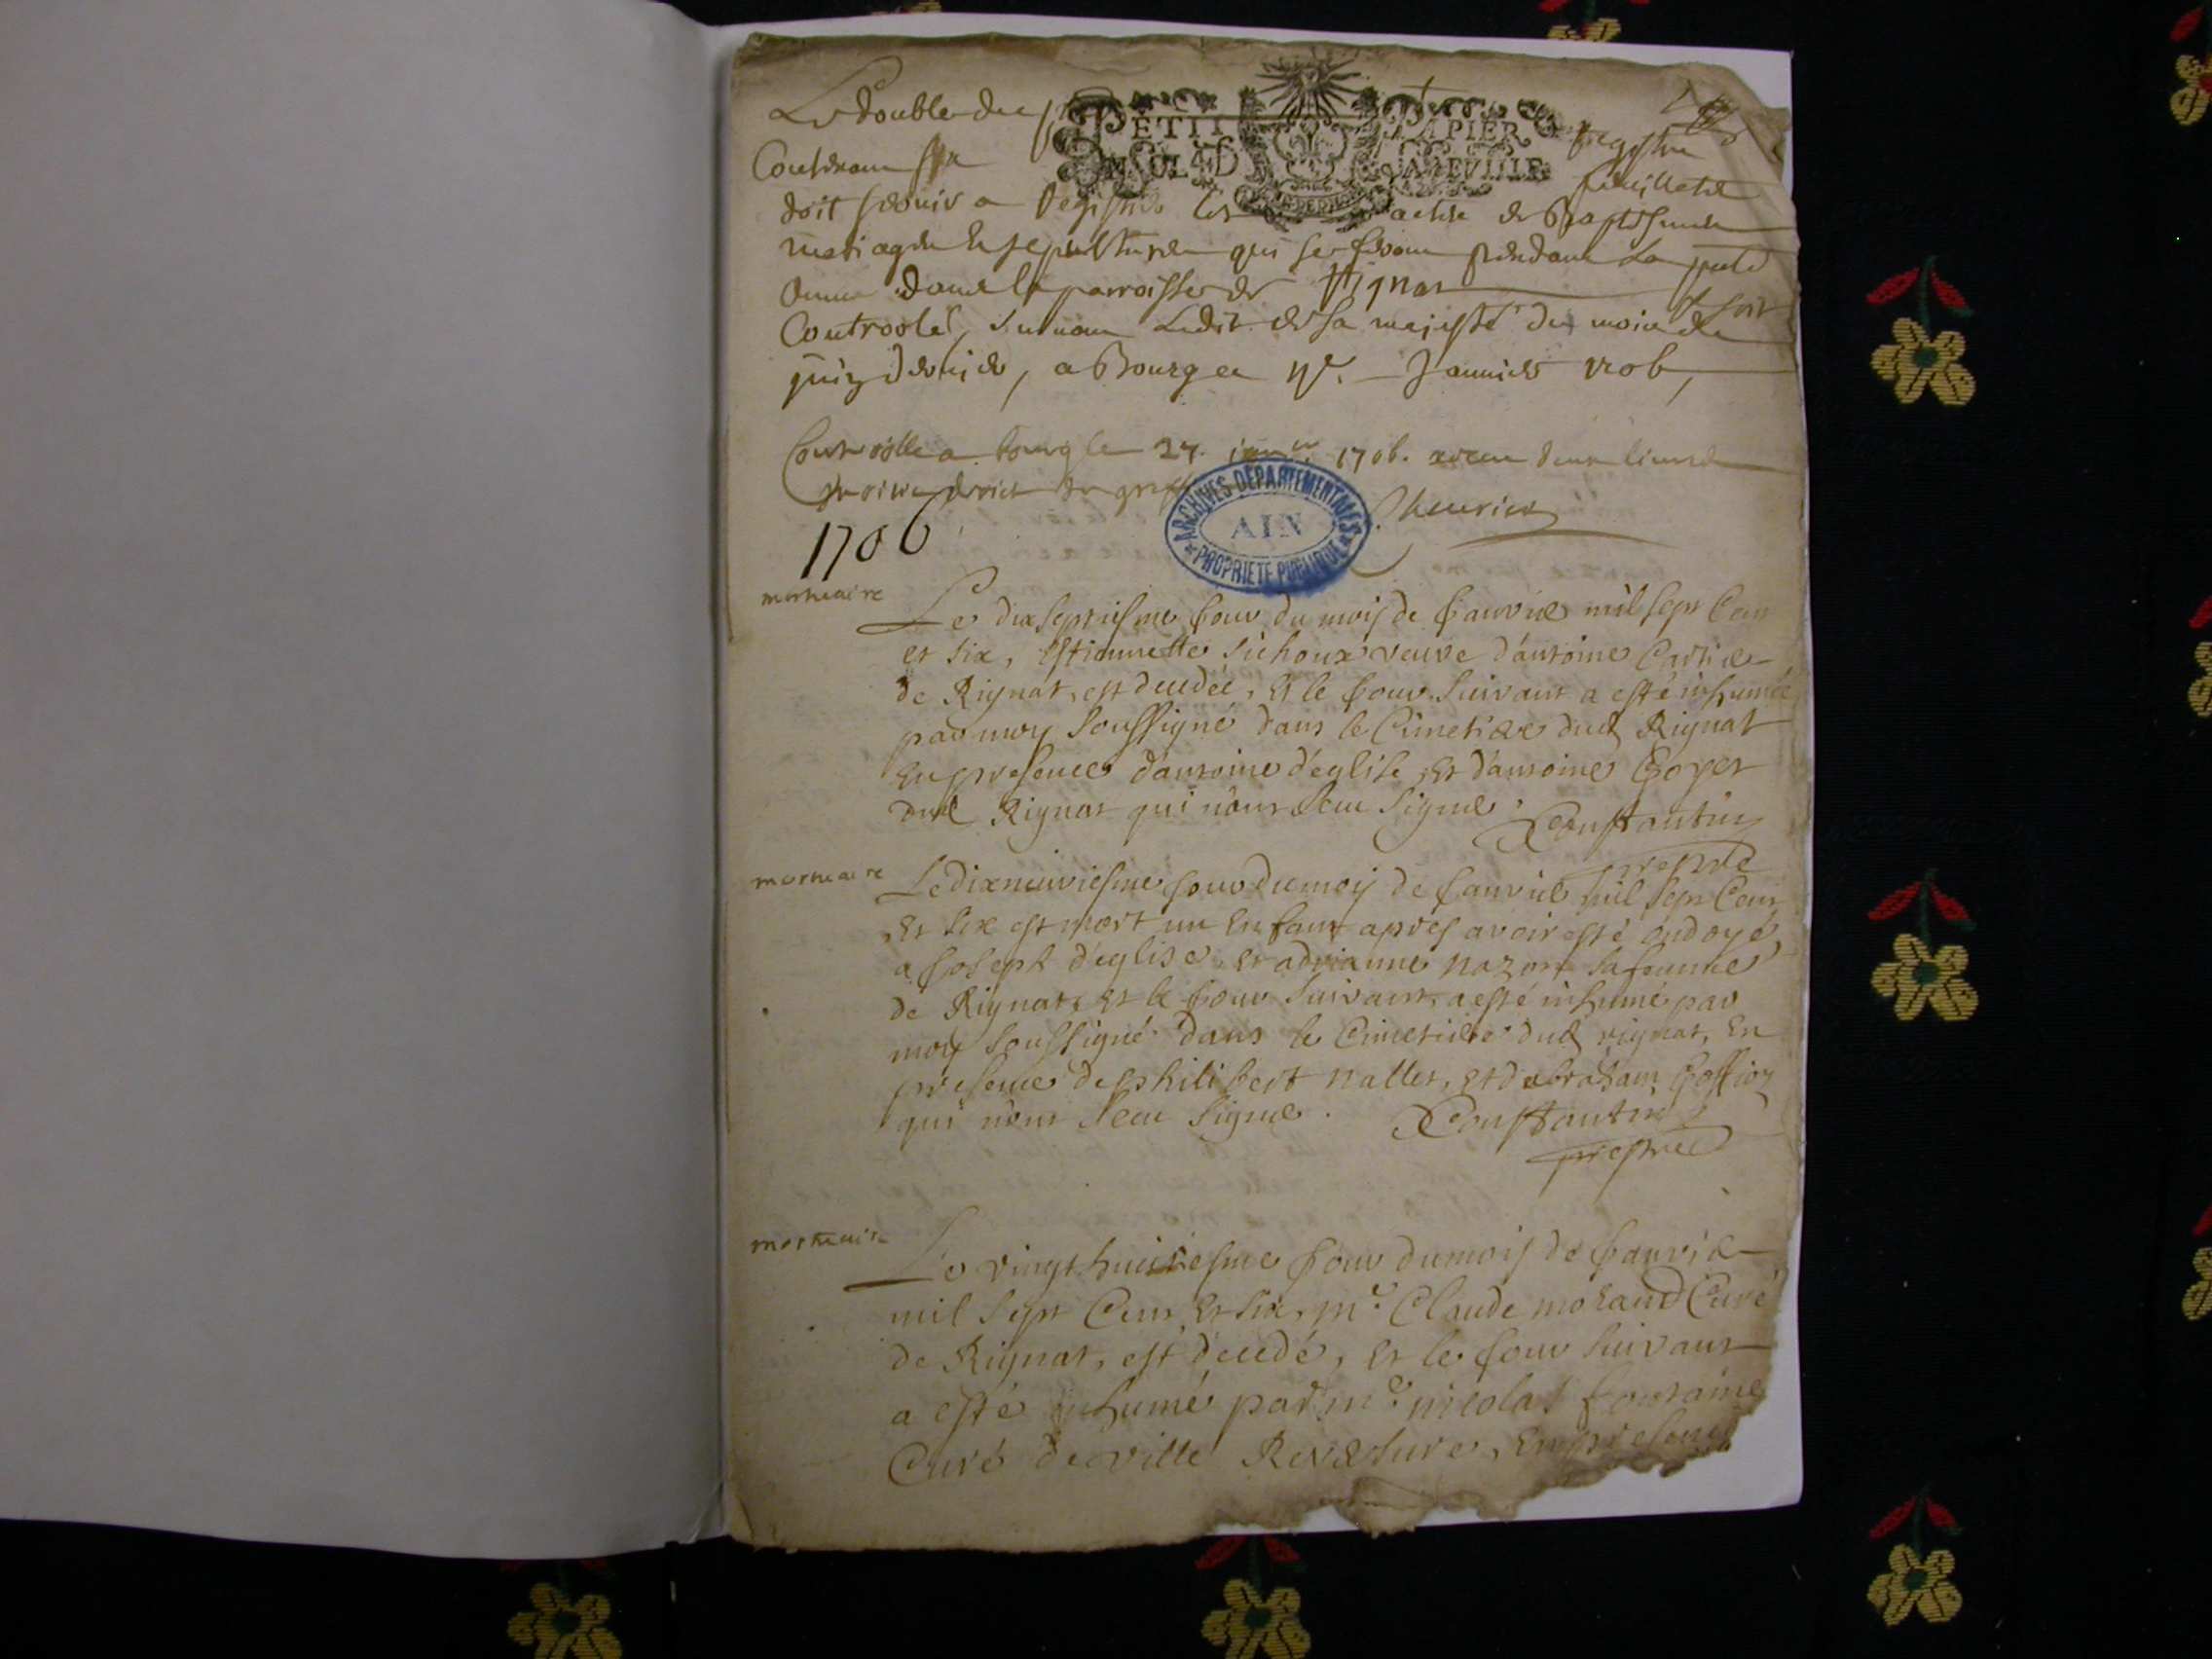 Le double du
PETIT PAPIER
Registre
Contenant six
feuillets
doit servir a Registrer les actes de Baptesmes
mariages & sepultures qui se feront pendant la pnte
Annee dans la parroisse de Rignat
& soit
Controolé, suivant Ledit de sa majesté du mois de
juin dernier, a Bourg ce Janvier 1706,
Controlle a bourg le 27. janer. 1706. receu deux livres
1706
ARCHIVES DEPARTEMENTALES
AIN
PROPRIETE PUBLIQUE
mortuaire
Le dix septiesme jour du mois de janvier mil sept Cens
et six, Estiennette Sichoux veuve d'antoine Cartier
de Rignat, est decedée, Et le jour suivant a esté inhumée
par moy soussigné dans le Cimetiere dud Rignat
En presence d'antoine d'église, Et d'antoine Goyet
dud Rignat qui n'ont sceu signer. Constantin
prestre
mortuaire
Le dixneuviesme jour du moij de janvier mil sept Cens
Et six est mort un Enfant apres avoir esté ondoyé,
a joseph d'eglise, Et adrianne nazon sa femme
de Rignat, Et le jour suivant, a esté inhumé par
moy soussigné dans le Cimetiere dud rignat, En
presence de philibert nallet, et d'abraham Goffion
qui n'ont sceu signer. Constantin
prestre
mortuaire
Le vingt huictiesme jour du mois de janvier
mil sept Cens Et six, Mre Claude morand Curé
de Rignat, est décedé, Et le jour suivant
a esté inhumé par mre nicolas fontaine
Curé de ville Reversure, En presence